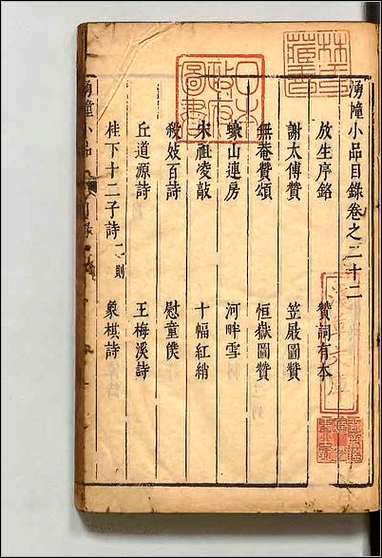 湧幢小品目錄卷之二十二
放生序銘 贊詞有本
謝太傅贊 笠屐圖贊
無菴贊頌 恒嶽圖贊
蠟山連房 河畔雪
宋祖凌敲 十幅紅綃
殺妓百詩 慰童僕
丘道源詩 王梅溪詩
桂下十二子詩二則 象棋詩
湧幢小品
林氏藏書
日本政府圖書